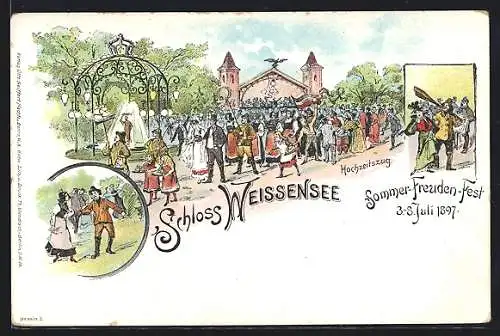 Hochzeitszug.
Schloss Weissensee
Sommer-Freuden-Fest
3-8. Juli 1897.